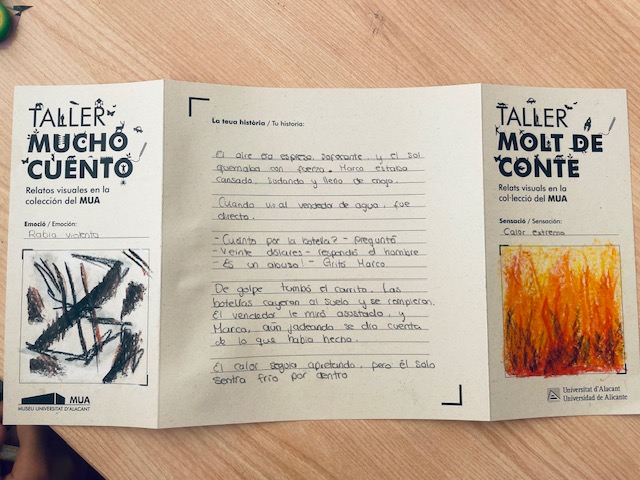 TALLER
MUCHO
CUENTO
Relatos visuales en la
colección del MUA
Emoció / Emoción:
Rabia violenta
MUA
MUSEU UNIVERSITAT D'ALACANT
La teua història / Tu historia:
El aire era espeso, sofocante, y el sol
quemaba con fuerza. Marco estaba
cansado, sudando y lleno de enojo.
Cuando vio al vendedor de agua, fue
directo.
-Cuánto por la botella? - preguntó
-Veinte dólares - respondió el hombre
- Es un abuso! - Gritó Marco
De golpe tumbó el carrito. Las
botellas cayeron al suelo y se rompieron.
El vendedor le miró asustado, y
Marco, aún jadeando se dio cuenta
de lo que había hecho.
El calor seguía apretando, pero él solo
sentía frío por dentro
TALLER
MOLT DE
CONTE
Relats visuals en la
col·lecció del MUA
Sensació / Sensación:
Calor extremo
Universitat d'Alacant
Universidad de Alicante